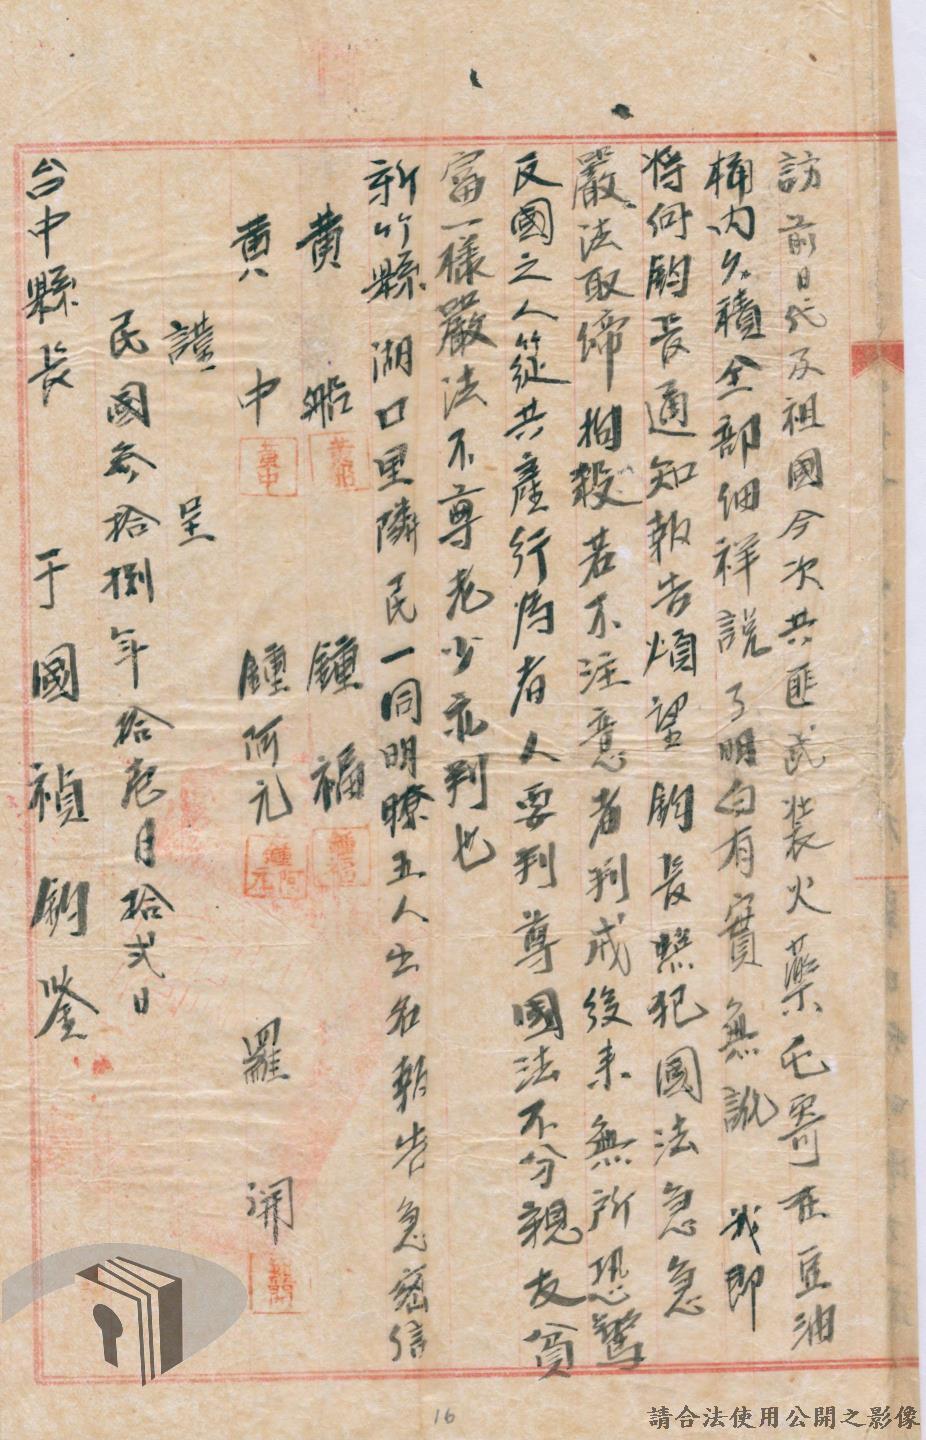 訪前日代及祖國今次共匪武裝火藥乇寄在豆油
桶內久積全部細祥說了明白有實無訛 我即
將何鈞長通知報告煩望 鈞長照犯國法急急
嚴法取締拍殺若不注意者判戒後來無所恐驚
反國之人從共產行為者人要判尊國法不分親友貧
富一樣嚴法不尊老少乖判也
新竹縣 湖口里隣民一同明瞭五人出名報告急密信
黃船 鍾福
黃中 鍾阿元 羅開
謹呈
民國叁拾捌年拾壱月拾弍日
台中縣長 于國禎鈞鑒
黃船
黃中
鍾福
鍾阿元
羅開
16
請合法使用公開之影像